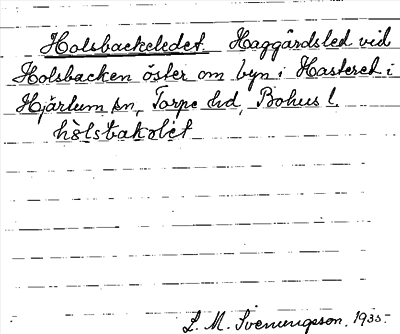 Holsbackeledet. Haggårdsled vid
Holsbacken öster om byn i Hasteret i
Hjärtum sn, Torpe hd, Bohus l.
hòlsbakolèt
L. M. Svenungsson. 1935.